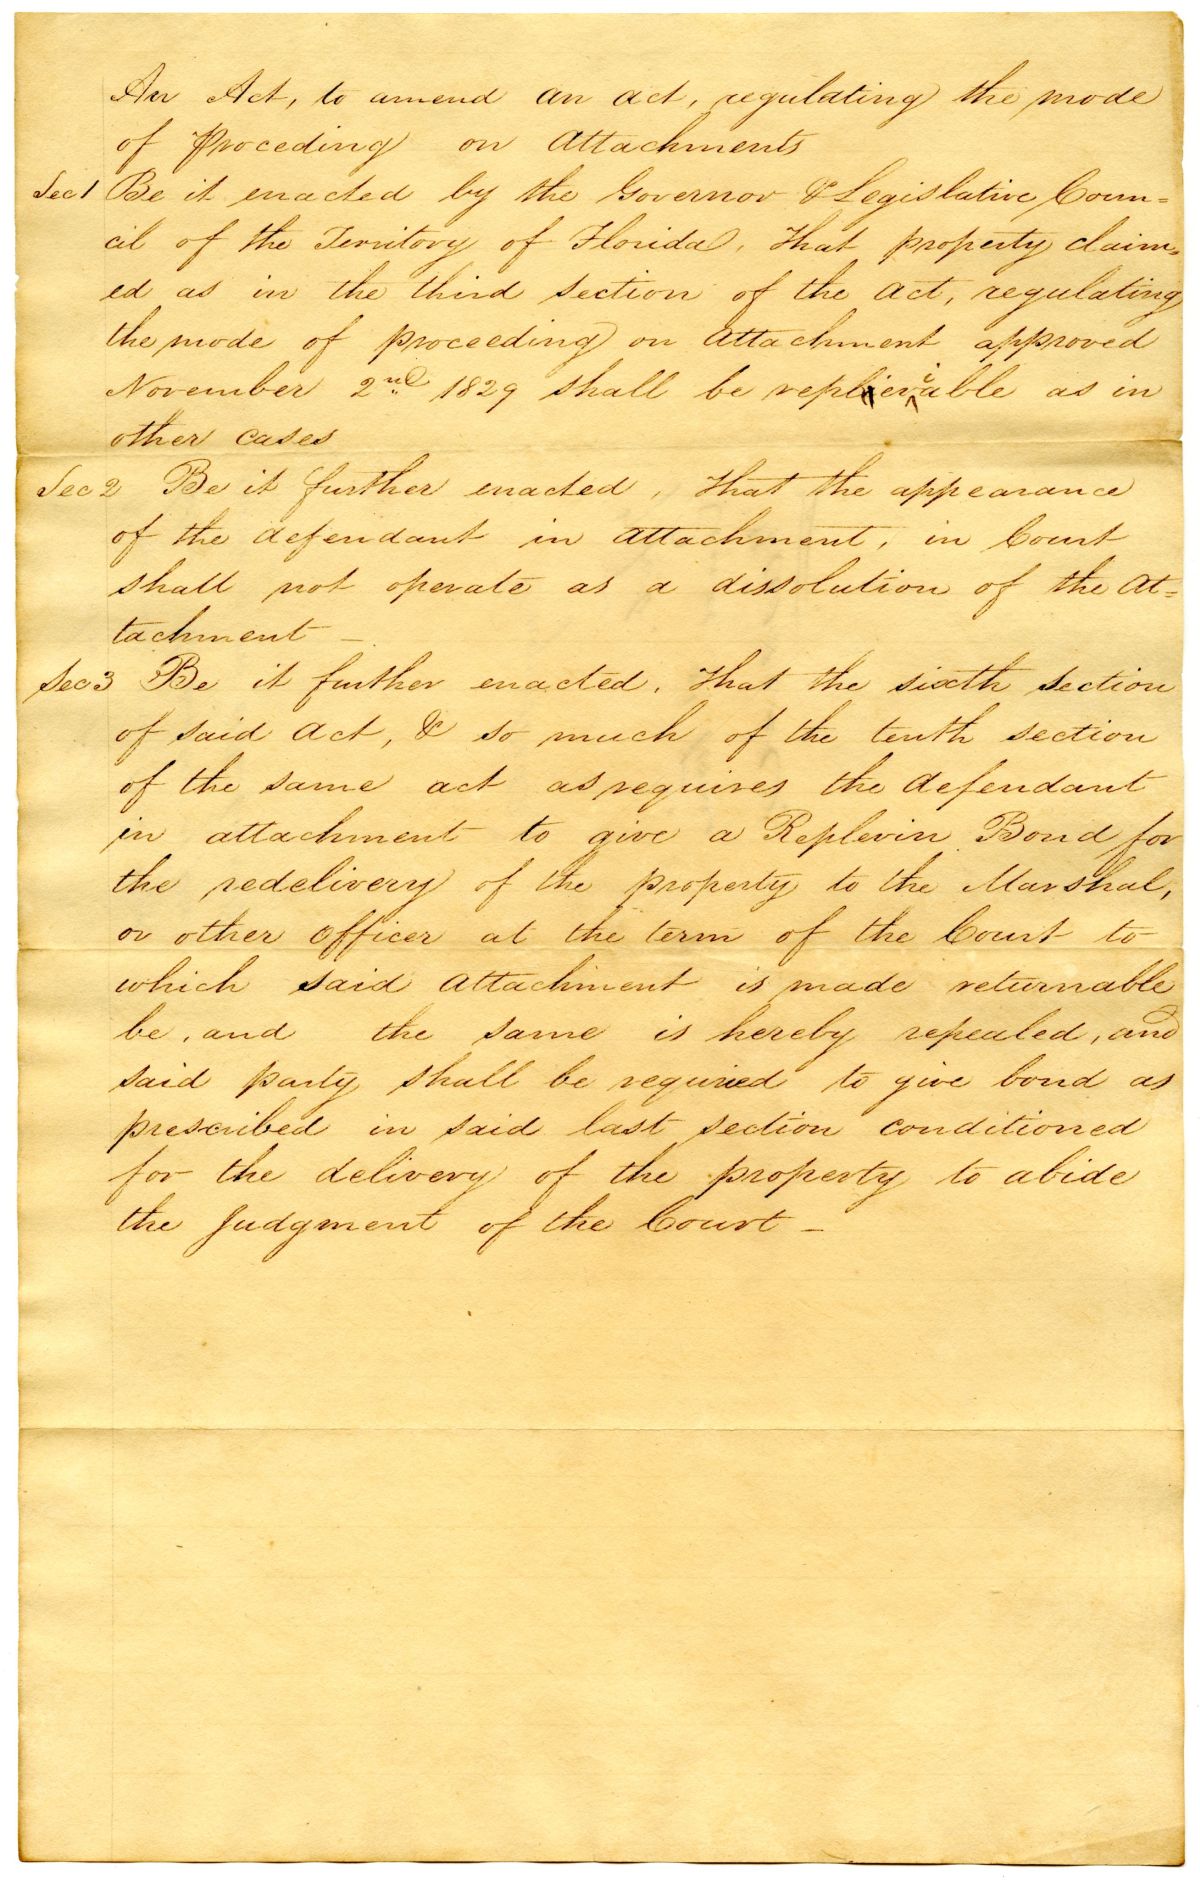 An Act, to amend an act, regulating the mode
of Proceding on Attachments
Sec 1 Be it enacted by the Governor & Legislative Coun=
cil of the Territory of Florida, that property claim=
ed as in the third section of the act, regulating
the mode of proceeding on Attachment approved
November 2nd 1829 shall be repleviable as in
other cases
Sec 2 Be it further enacted, that the appearance
of the defendant in attachment, in Court
shall not operate as a dissolution of the At=
tachment _
Sec 3 Be it further enacted, that the sixth section
of said act, & so much of the tenth section
of the same act as requires the defendant
in attachment to give a Replevin Bond for
the redelivery of the property to the Marshal,
or other officer at the term of the Court to
which said Attachment is made returnable
be, and the same is hereby repealed, and
said party shall be required to give bond as
prescribed in said last section conditioned
for the delivery of the property to abide
the Judgment of the Court _